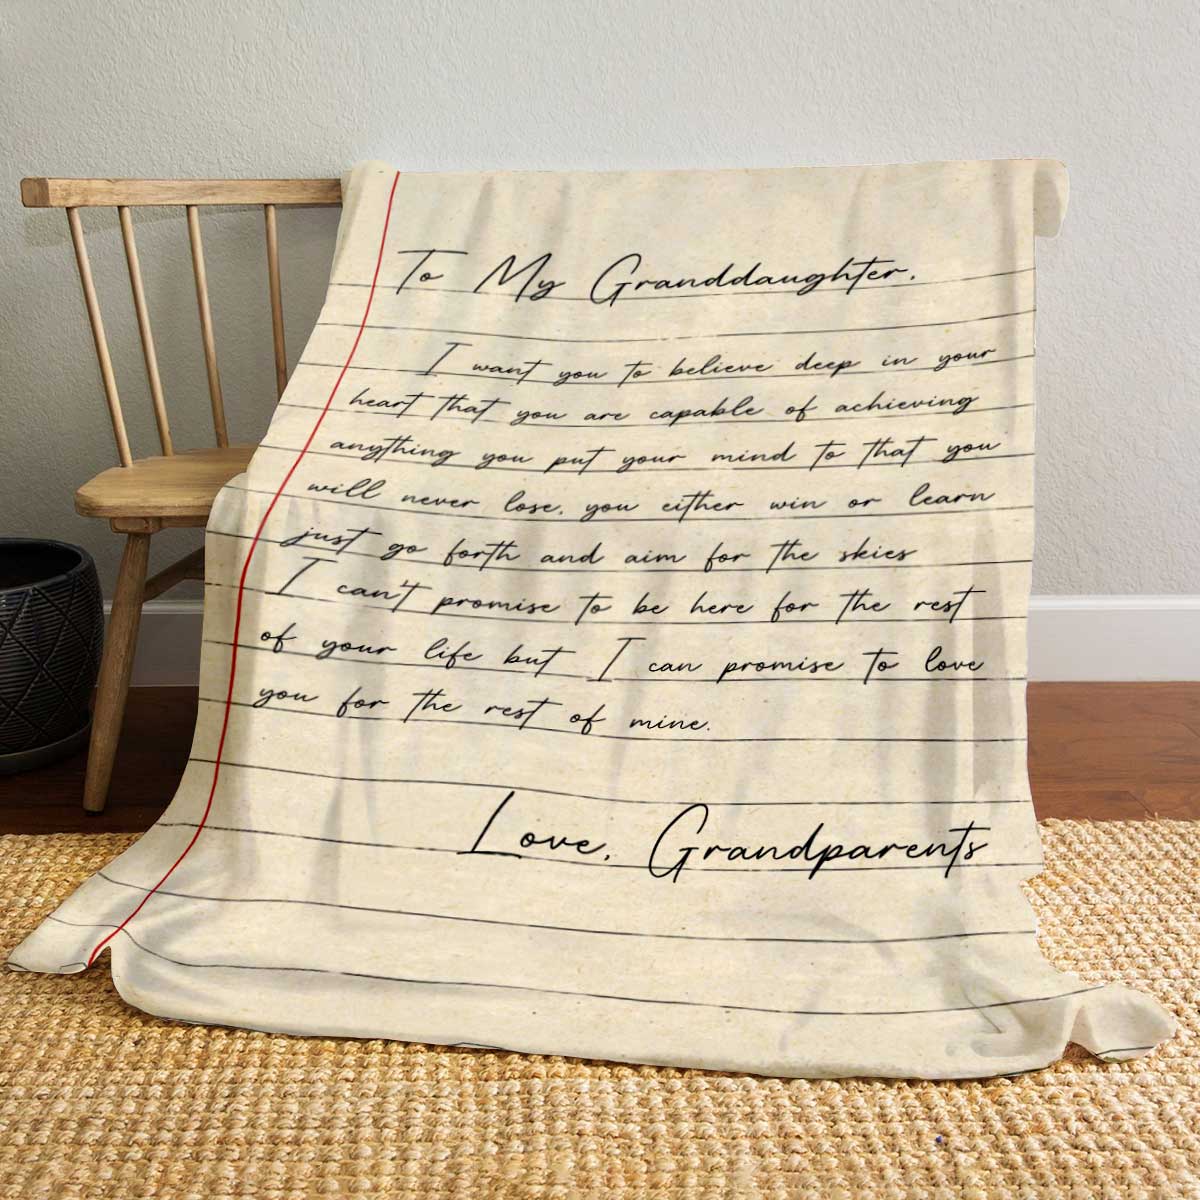 To My Granddaughter,
I want you to believe deep in your
heart that you are capable of achieving
anything you put your mind to that you
will never lose, you either win or learn
just go forth and aim for the skies
I can't promise to be here for the rest
of your life but I can promise to love
you for the rest of mine.
Love, Grandparents